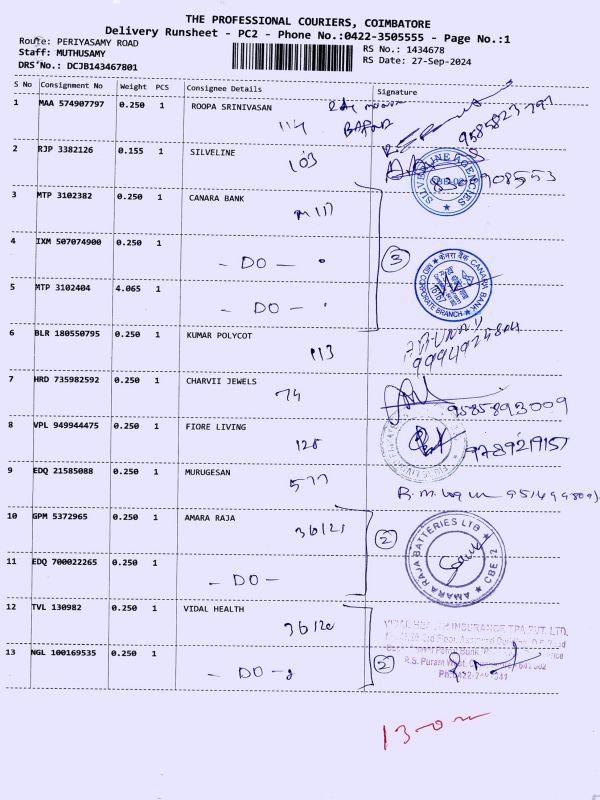 THE PROFESSIONAL COURIERS, COIMBATORE
Delivery Runsheet - PC2 - Phone No.:0422-3505555 - Page No.:1
Route: PERIYASAMY ROAD
RS No.: 1434678
Staff: MUTHUSAMY
RS Date: 27-Sep-2024
DRS No.: DCJB143467801
S No Consignment No Weight PCS Consignee Details Signature
1 MAA 574907797 0.250 1 ROOPA SRINIVASAN
114
9585823791
2 RJP 3382126 0.155 1 SILVELINE
103
SILVELINE AGENCIES
3 MTP 3102382 0.250 1 CANARA BANK
117
4 IXM 507074900 0.250 1
- DO -
3
केनरा बैंक CANARA BANK
MID CORPORATE BRANCH
5 MTP 3102404 4.065 1
- DO -
6 BLR 180550795 0.250 1 KUMAR POLYCOT
113
7 HRD 735982592 0.250 1 CHARVII JEWELS
74
9585893009
8 VPL 949944475 0.250 1 FIORE LIVING
128
9789219157
9 EDQ 21585088 0.250 1 MURUGESAN
577
10 GPM 5372965 0.250 1 AMARA RAJA
3612
2
AMARA RAJA BATTERIES LTD
CBE 12
11 EDQ 700022265 0.250 1
- DO -
12 TVL 130982 0.250 1 VIDAL HEALTH
3612
VIDAL HEALTH INSURANCE TPA PVT. LTD.
13 NGL 100169535 0.250 1
- DO -
2
R.S. Puram West, Coimbatore